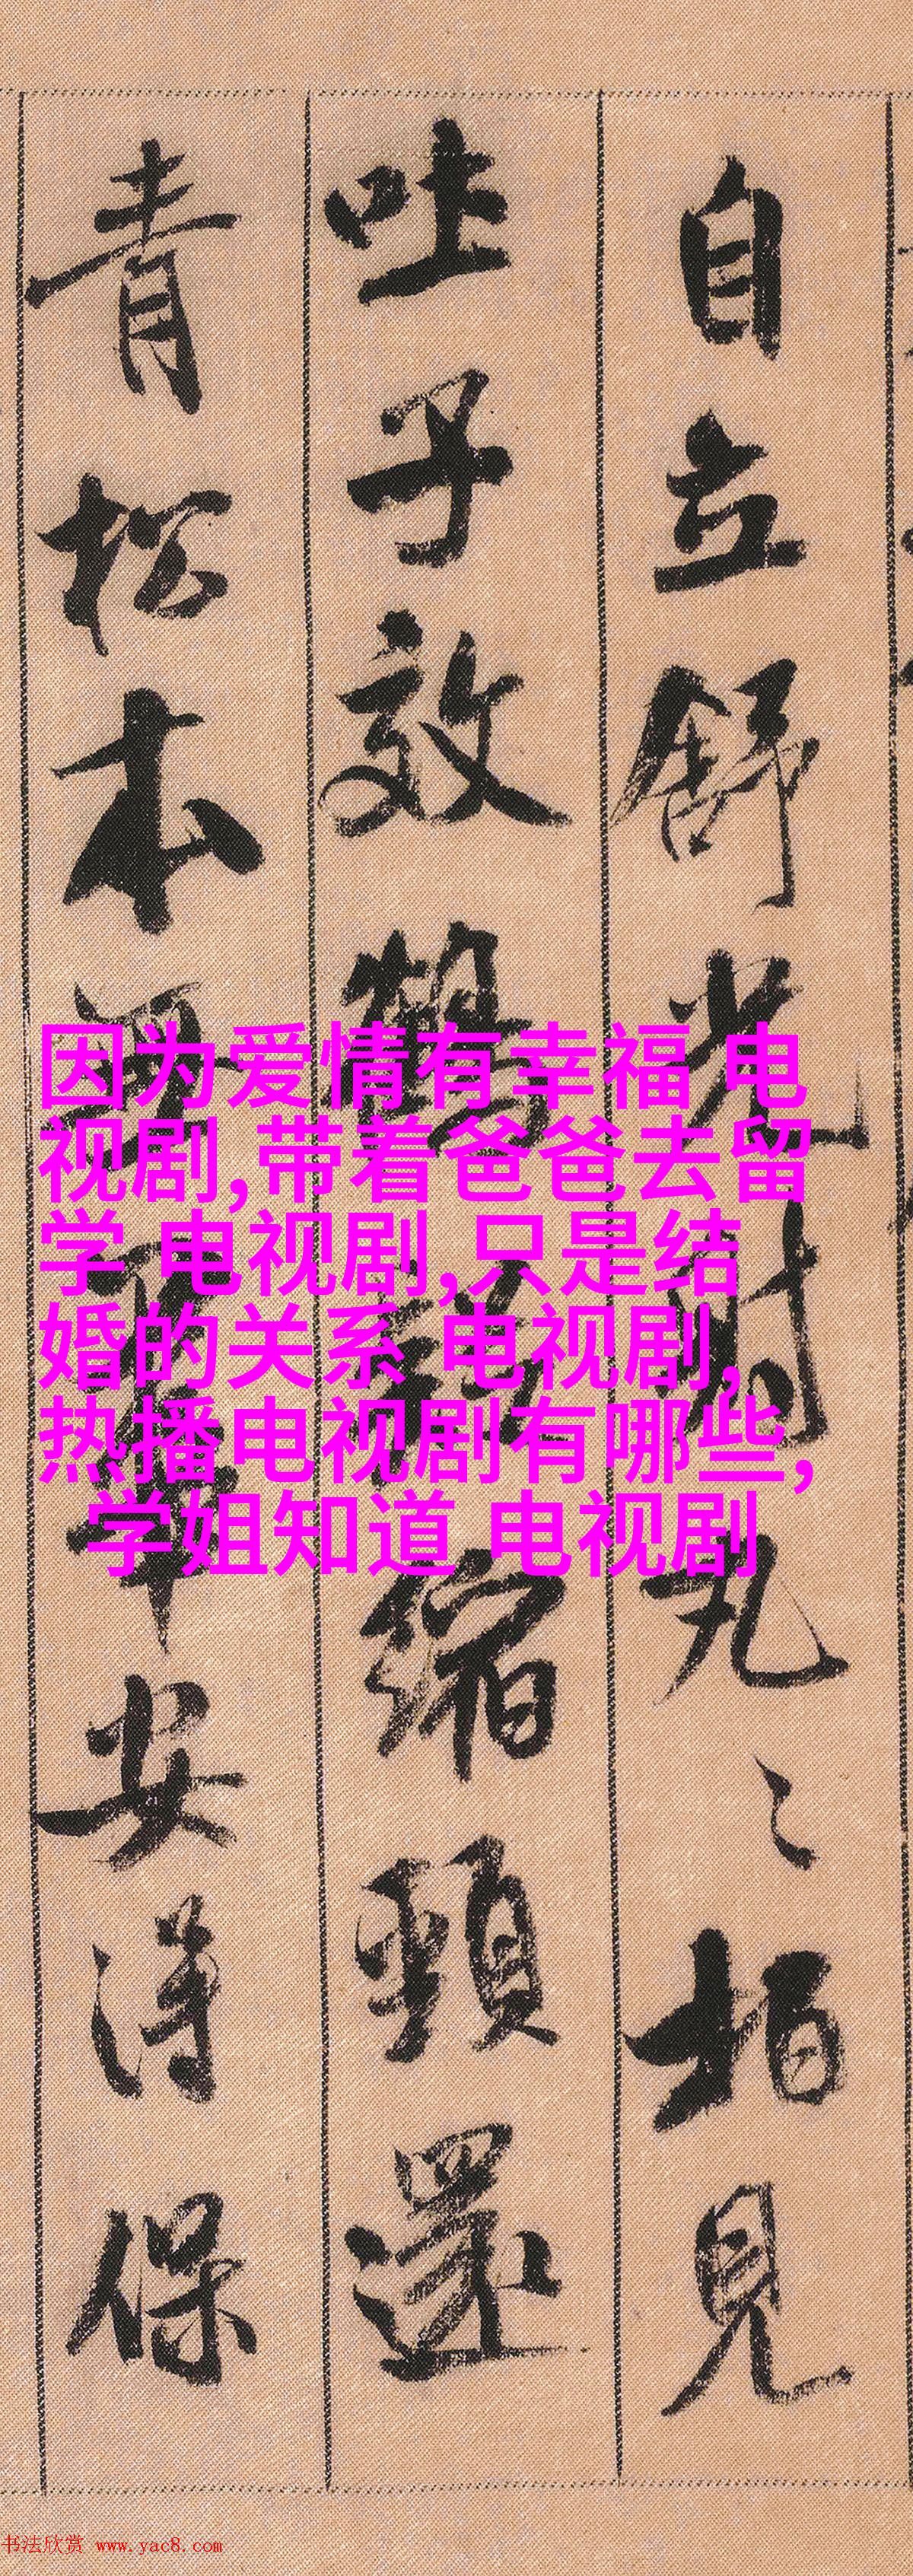 自立舒光射丸〻柏見
吐子效鶴縮頸還
青松本華安得保
因为爱情有幸福 电
视剧,带着爸爸去留
学 电视剧,只是结
婚的关系 电视剧,
热播电视剧有哪些,
学姐知道 电视剧
书法欣赏 www.yac8.com